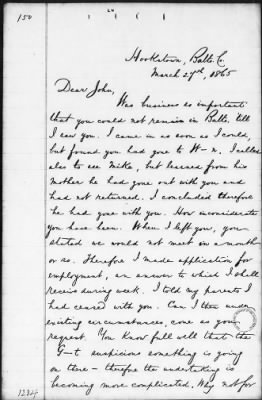 150
Hookstown, Balto. Co.
March 27th, 1865
Dear John,
Was business so important
that you could not remain in Balto. till
I saw you. I came in as soon as I could,
but found you had gone to W-n. I called
also to see Mike, but learned from his
mother he had gone out with you and
had not returned. I concluded therefore
he had gone with you. How inconsiderate
you have been. When I left you, you
stated we would not meet in a month
or so. Therefore I made application for
employment, an answer to which I shall
receive during week. I told my parents I
had ceased with you. Can I then under
existing circumstances, come as you
request. You know full well that the
G-t suspicions something is going
on there - therefore the undertaking is
becoming more complicated. Why not for